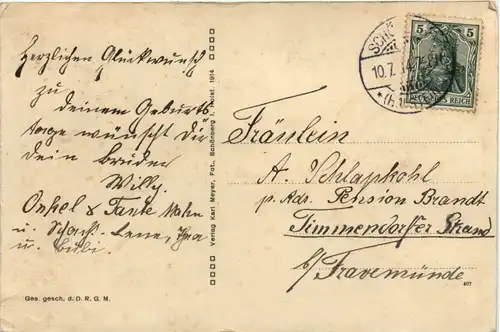 Herzlichen Glückwunsch
zu
deinem Geburts
tage wünscht Dir
dein bruder
Willy.
Onkel & Tante Mohn
u.
u. Bubi.
Ges. gesch. d. D. R. G. M.
Verlag Karl Meyer, Fot., Schönberg i. Holst. 1914
10.7.
5 5
DEUTSCHES REICH
Fräulein
A. Schlapkohl
p. Adr. Pension Brandt
Timmendorfer Strand
b/ Travemünde
407